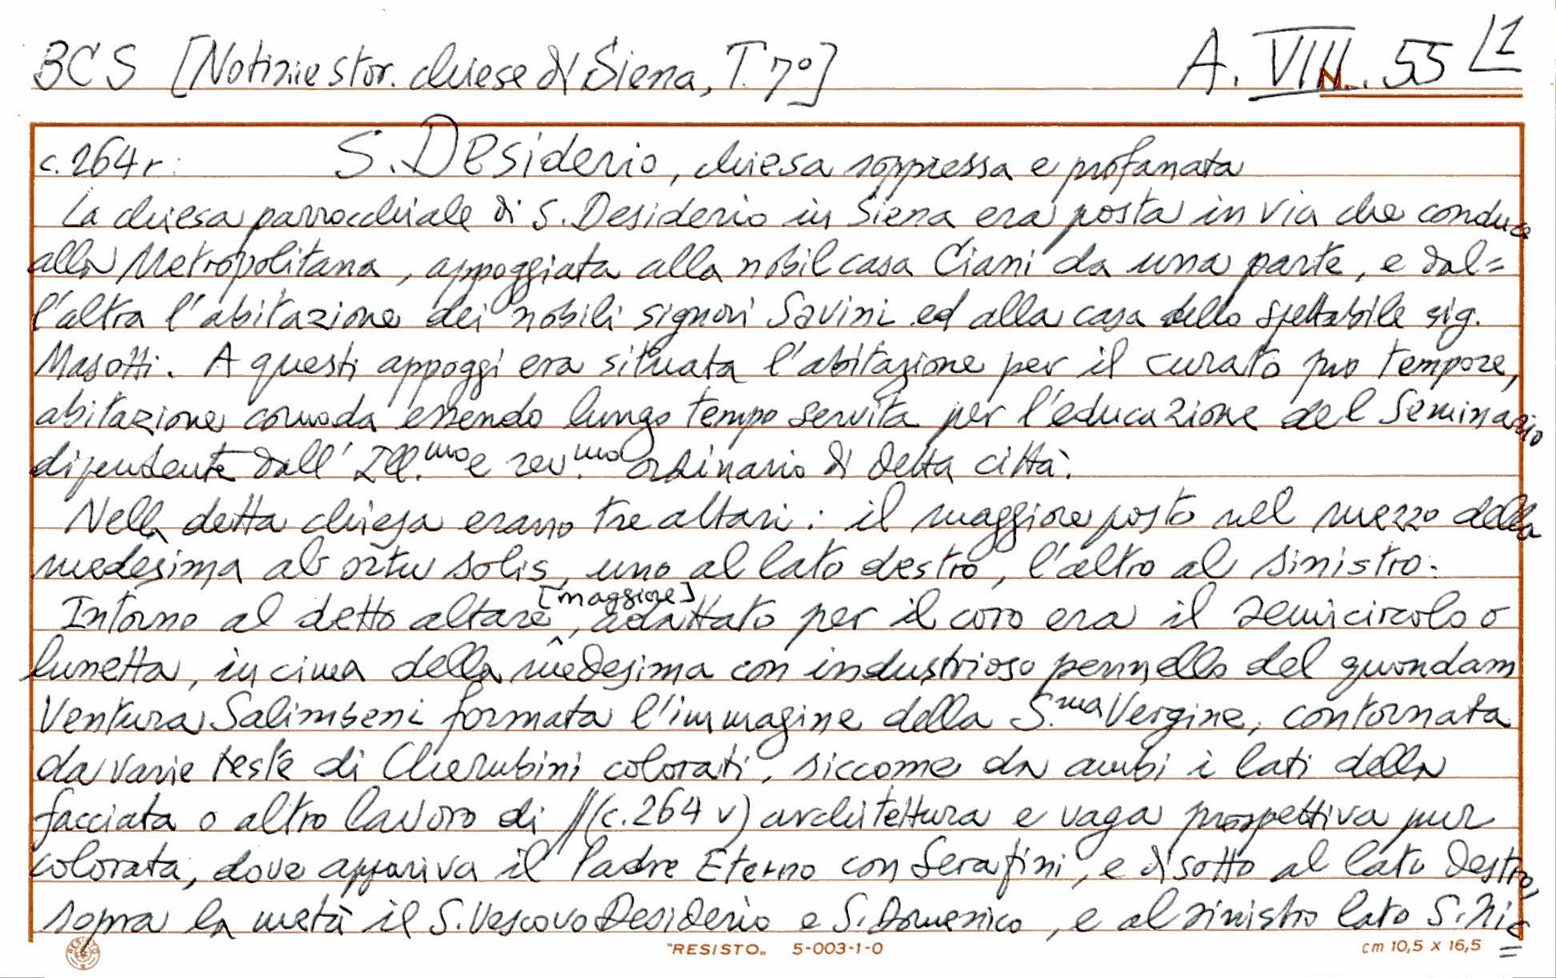 BCS [Notizie stor. chiese di Siena, T. 7°] A. VIII. 55 L1
N.
c. 264 r: S. Desiderio, chiesa soppressa e profanata
La chiesa parrocchiale di S. Desiderio in Siena era posta in via che conduce
alla Metropolitana, appoggiata alla nobil casa Ciani da una parte, e dal=
l'altra l'abitazione dei nobili signori Savini ed alla casa dello spettabile sig.
Masotti. A questi appoggi era situata l'abitazione per il curato pro tempore,
abitazione comoda essendo lungo tempo servita per l'educazione del Seminario
dipendente dall' Ill.mo e rev.mo ordinario di detta città.
Nella detta chiesa erano tre altari: il maggiore posto nel mezzo della
medesima ab ortu solis, uno al lato destro, l'altro al sinistro.
Intorno al detto altare [maggiore], adattato per il coro era il semicircolo o
lunetta, in cima della medesima con industrioso pennello del quondam
Ventura Salimbeni formata l'immagine della S.ma Vergine, contornata
da varie teste di Cherubini colorati, siccome da ambi i lati della
facciata o altro lavoro di //(c. 264 v) architettura e vaga prospettiva pur
colorata, dove appariva il Padre Eterno con Serafini, e di sotto al lato destro,
sopra la metà il S. Vescovo Desiderio e S. Domenico, e al sinistro lato S. Nic=
"RESISTO„ 5-003-1-0 cm 10,5 x 16,5